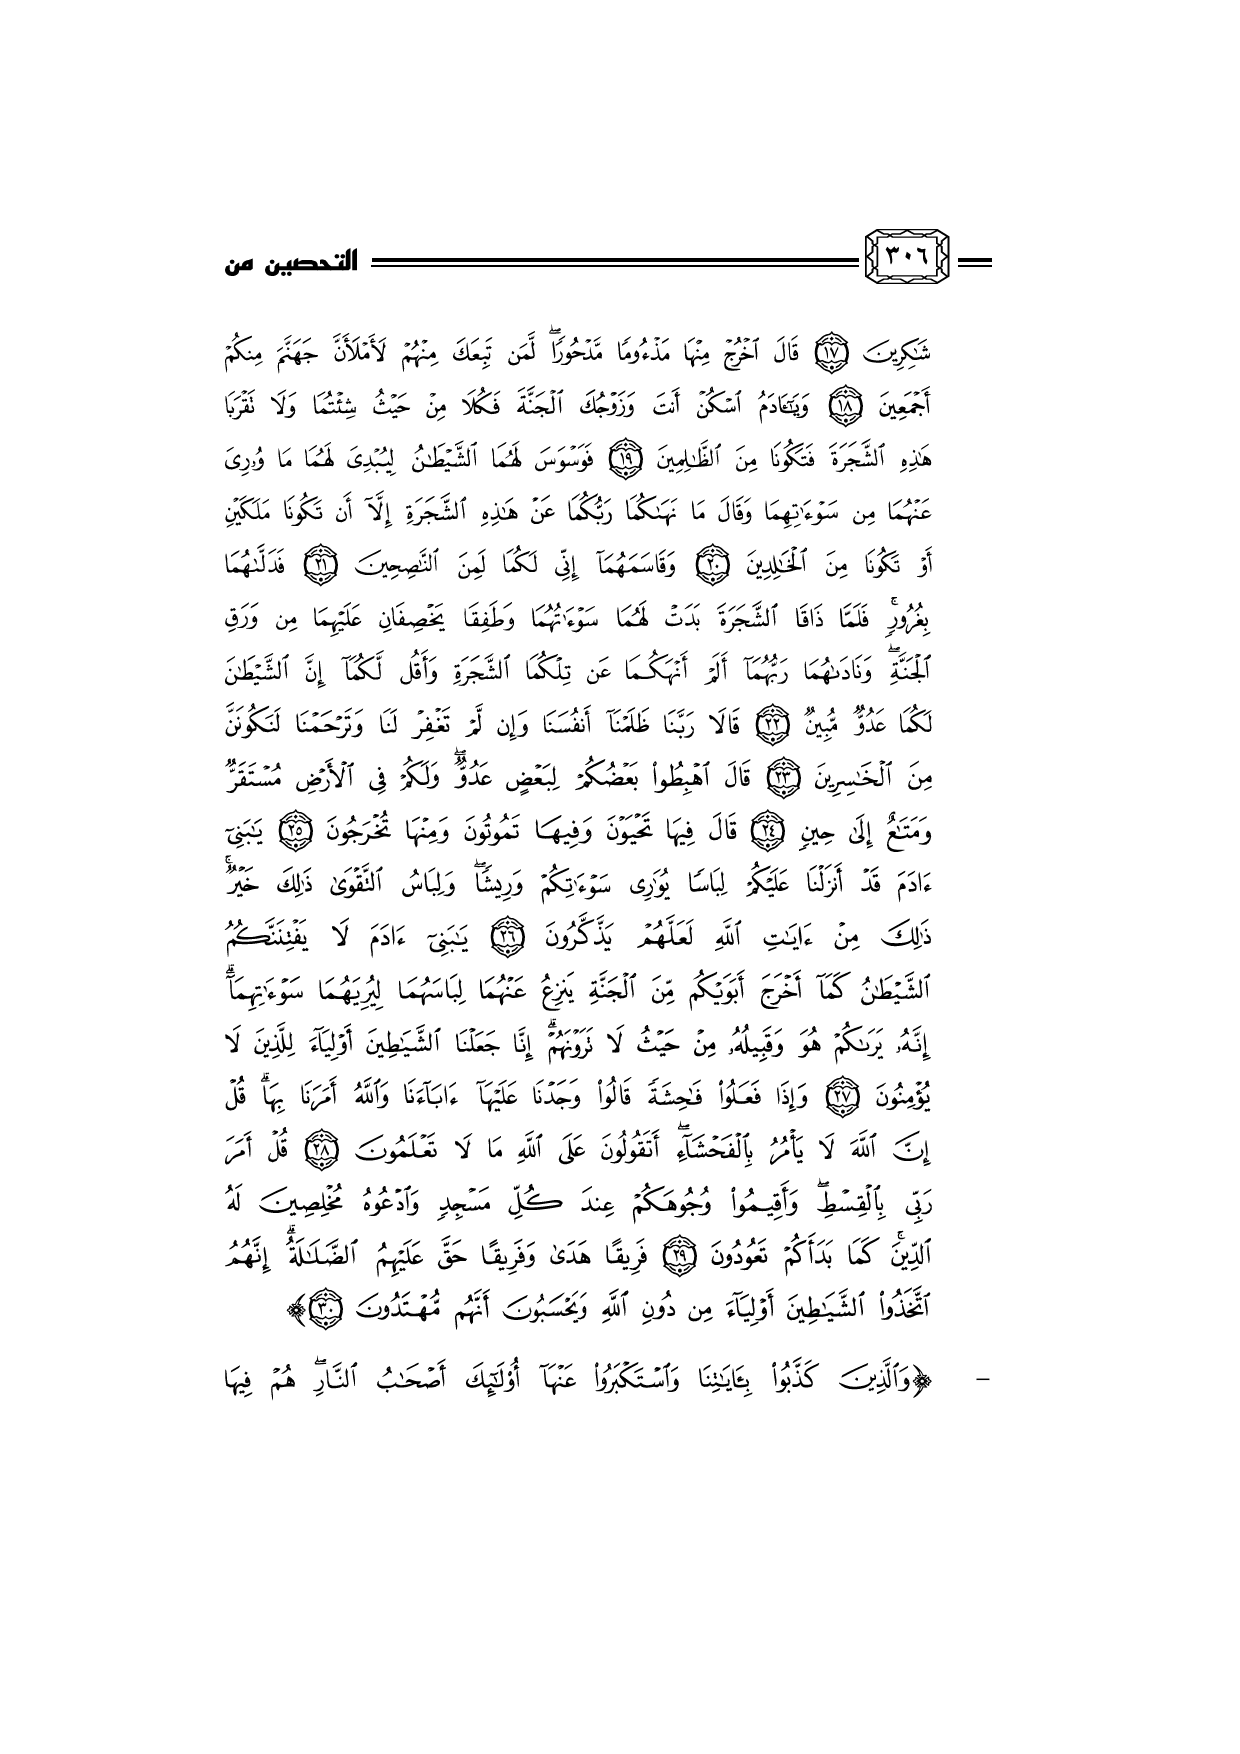 ٣٠٦ التحصين من
شَٰكِرِينَ ١٧ قَالَ ٱخْرُجْ مِنْهَا مَذْءُومًا مَّدْحُورًاۖ لَّمَن تَبِعَكَ مِنْهُمْ لَأَمْلَأَنَّ جَهَنَّمَ مِنكُمْ
أَجْمَعِينَ ١٨ وَيَٰٓـَٔادَمُ ٱسْكُنْ أَنتَ وَزَوْجُكَ ٱلْجَنَّةَ فَكُلَا مِنْ حَيْثُ شِئْتُمَا وَلَا تَقْرَبَا
هَٰذِهِ ٱلشَّجَرَةَ فَتَكُونَا مِنَ ٱلظَّٰلِمِينَ ١٩ فَوَسْوَسَ لَهُمَا ٱلشَّيْطَٰنُ لِيُبْدِيَ لَهُمَا مَا وُۥرِيَ
عَنْهُمَا مِن سَوْءَٰتِهِمَا وَقَالَ مَا نَهَىٰكُمَا رَبُّكُمَا عَنْ هَٰذِهِ ٱلشَّجَرَةِ إِلَّآ أَن تَكُونَا مَلَكَيْنِ
أَوْ تَكُونَا مِنَ ٱلْخَٰلِدِينَ ٢٠ وَقَاسَمَهُمَآ إِنِّي لَكُمَا لَمِنَ ٱلنَّٰصِحِينَ ٢١ فَدَلَّىٰهُمَا
بِغُرُورٍۚ فَلَمَّا ذَاقَا ٱلشَّجَرَةَ بَدَتْ لَهُمَا سَوْءَٰتُهُمَا وَطَفِقَا يَخْصِفَانِ عَلَيْهِمَا مِن وَرَقِ
ٱلْجَنَّةِۖ وَنَادَىٰهُمَا رَبُّهُمَآ أَلَمْ أَنْهَكُمَا عَن تِلْكُمَا ٱلشَّجَرَةِ وَأَقُل لَّكُمَآ إِنَّ ٱلشَّيْطَٰنَ
لَكُمَا عَدُوٌّ مُّبِينٌ ٢٢ قَالَا رَبَّنَا ظَلَمْنَآ أَنفُسَنَا وَإِن لَّمْ تَغْفِرْ لَنَا وَتَرْحَمْنَا لَنَكُونَنَّ
مِنَ ٱلْخَٰسِرِينَ ٢٣ قَالَ ٱهْبِطُوا۟ بَعْضُكُمْ لِبَعْضٍ عَدُوٌّۖ وَلَكُمْ فِي ٱلْأَرْضِ مُسْتَقَرٌّ
وَمَتَٰعٌ إِلَىٰ حِينٍ ٢٤ قَالَ فِيهَا تَحْيَوْنَ وَفِيهَا تَمُوتُونَ وَمِنْهَا تُخْرَجُونَ ٢٥ يَٰبَنِيٓ
ءَادَمَ قَدْ أَنزَلْنَا عَلَيْكُمْ لِبَاسًا يُوَٰرِي سَوْءَٰتِكُمْ وَرِيشًاۖ وَلِبَاسُ ٱلتَّقْوَىٰ ذَٰلِكَ خَيْرٌۚ
ذَٰلِكَ مِنْ ءَايَٰتِ ٱللَّهِ لَعَلَّهُمْ يَذَّكَّرُونَ ٢٦ يَٰبَنِيٓ ءَادَمَ لَا يَفْتِنَنَّكُمُ
ٱلشَّيْطَٰنُ كَمَآ أَخْرَجَ أَبَوَيْكُم مِّنَ ٱلْجَنَّةِ يَنزِعُ عَنْهُمَا لِبَاسَهُمَا لِيُرِيَهُمَا سَوْءَٰتِهِمَآۗ
إِنَّهُۥ يَرَىٰكُمْ هُوَ وَقَبِيلُهُۥ مِنْ حَيْثُ لَا تَرَوْنَهُمْۗ إِنَّا جَعَلْنَا ٱلشَّيَٰطِينَ أَوْلِيَآءَ لِلَّذِينَ لَا
يُؤْمِنُونَ ٢٧ وَإِذَا فَعَلُوا۟ فَٰحِشَةً قَالُوا۟ وَجَدْنَا عَلَيْهَآ ءَابَآءَنَا وَٱللَّهُ أَمَرَنَا بِهَاۗ قُلْ
إِنَّ ٱللَّهَ لَا يَأْمُرُ بِٱلْفَحْشَآءِۖ أَتَقُولُونَ عَلَى ٱللَّهِ مَا لَا تَعْلَمُونَ ٢٨ قُلْ أَمَرَ
رَبِّي بِٱلْقِسْطِۖ وَأَقِيمُوا۟ وُجُوهَكُمْ عِندَ كُلِّ مَسْجِدٍ وَٱدْعُوهُ مُخْلِصِينَ لَهُ
ٱلدِّينَۚ كَمَا بَدَأَكُمْ تَعُودُونَ ٢٩ فَرِيقًا هَدَىٰ وَفَرِيقًا حَقَّ عَلَيْهِمُ ٱلضَّلَٰلَةُۗ إِنَّهُمُ
ٱتَّخَذُوا۟ ٱلشَّيَٰطِينَ أَوْلِيَآءَ مِن دُونِ ٱللَّهِ وَيَحْسَبُونَ أَنَّهُم مُّهْتَدُونَ ٣٠﴾
– ﴿وَٱلَّذِينَ كَذَّبُوا۟ بِـَٔايَٰتِنَا وَٱسْتَكْبَرُوا۟ عَنْهَآ أُو۟لَٰٓئِكَ أَصْحَٰبُ ٱلنَّارِۖ هُمْ فِيهَا